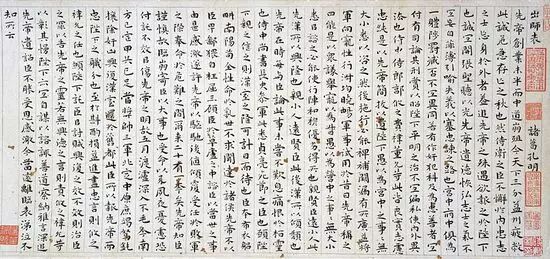 出師表 諸葛孔明
先帝創業未半而中道崩殂今天下三分益州疲敝
此誠危急存亡之秋也然侍衛之臣不懈於內忠志
之士忘身於外者蓋追先帝之殊遇欲報之於陛下
也誠宜開張聖聽以光先帝遺德恢弘志士之氣不
宜妄自菲薄引喻失義以塞忠諫之路也宮中府中俱為
一體陟罰臧否不宜異同若有作姦犯科及為忠善者宜
付有司論其刑賞以昭陛下平明之治不宜偏私使內外異
法也侍中侍郎郭攸之費禕董允等此皆良實志慮
忠純是以先帝簡拔以遺陛下愚以為宮中之事事無
大小悉以咨之然後施行必能裨補闕漏有所廣益將
軍向寵性行淑均曉暢軍事試用於昔日先帝稱之
曰能是以眾議舉寵以為督愚以為營中之事事無大小
悉以咨之必能使行陣和穆優劣得所也親賢臣遠小人此
先漢所以興隆也親小人遠賢臣此後漢所以傾頹也
先帝在時每與臣論此事未嘗不歎息痛恨於桓靈
也侍中尚書長史參軍此悉貞亮死節之臣也願陛下
親之信之則漢室之隆可計日而待也臣本布衣躬耕
南陽苟全性命於亂世不求聞達於諸侯先帝不以
臣卑鄙猥自枉屈三顧臣於草廬之中諮臣以當世之事
由是感激遂許先帝以驅馳後值傾覆受任於敗軍
之際奉命於危難之間爾來二十有一年矣先帝知臣
謹慎故臨崩寄臣以大事也受命以來夙夜憂歎恐
付託不效以傷先帝之明故五月渡瀘深入不毛今南
方已定兵甲已足當獎帥三軍北定中原庶竭駑鈍
攘除姦凶興復漢室還於舊都此臣所以報先帝而
忠陛下之職分也至於斟酌損益進盡忠言則攸之
禕允之任也願陛下託臣以討賊興復之效不效則治臣
之罪以告先帝之靈若無興德之言則責攸之禕允等
以彰其慢陛下亦宜自課以諮諏善道察納雅言深追
先帝遺詔臣不勝受恩感激今當遠離臨表涕泣不
知所云